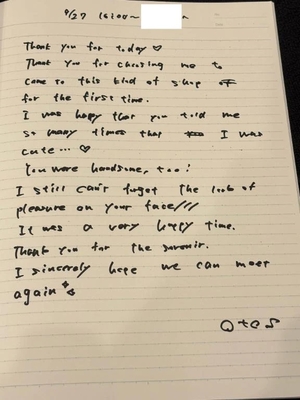 9/27 16:00~
Thank you for today ♡
Thank you for choosing me to
come to this kind of shop
for the first time.
I was happy that you told me
so many times that I was
cute... ♡
You were handsome, too!
I still can't forget the look of
pleasure on your face///
It was a very happy time.
Thank you for the suvenir.
I sincerely hope we can meet
again